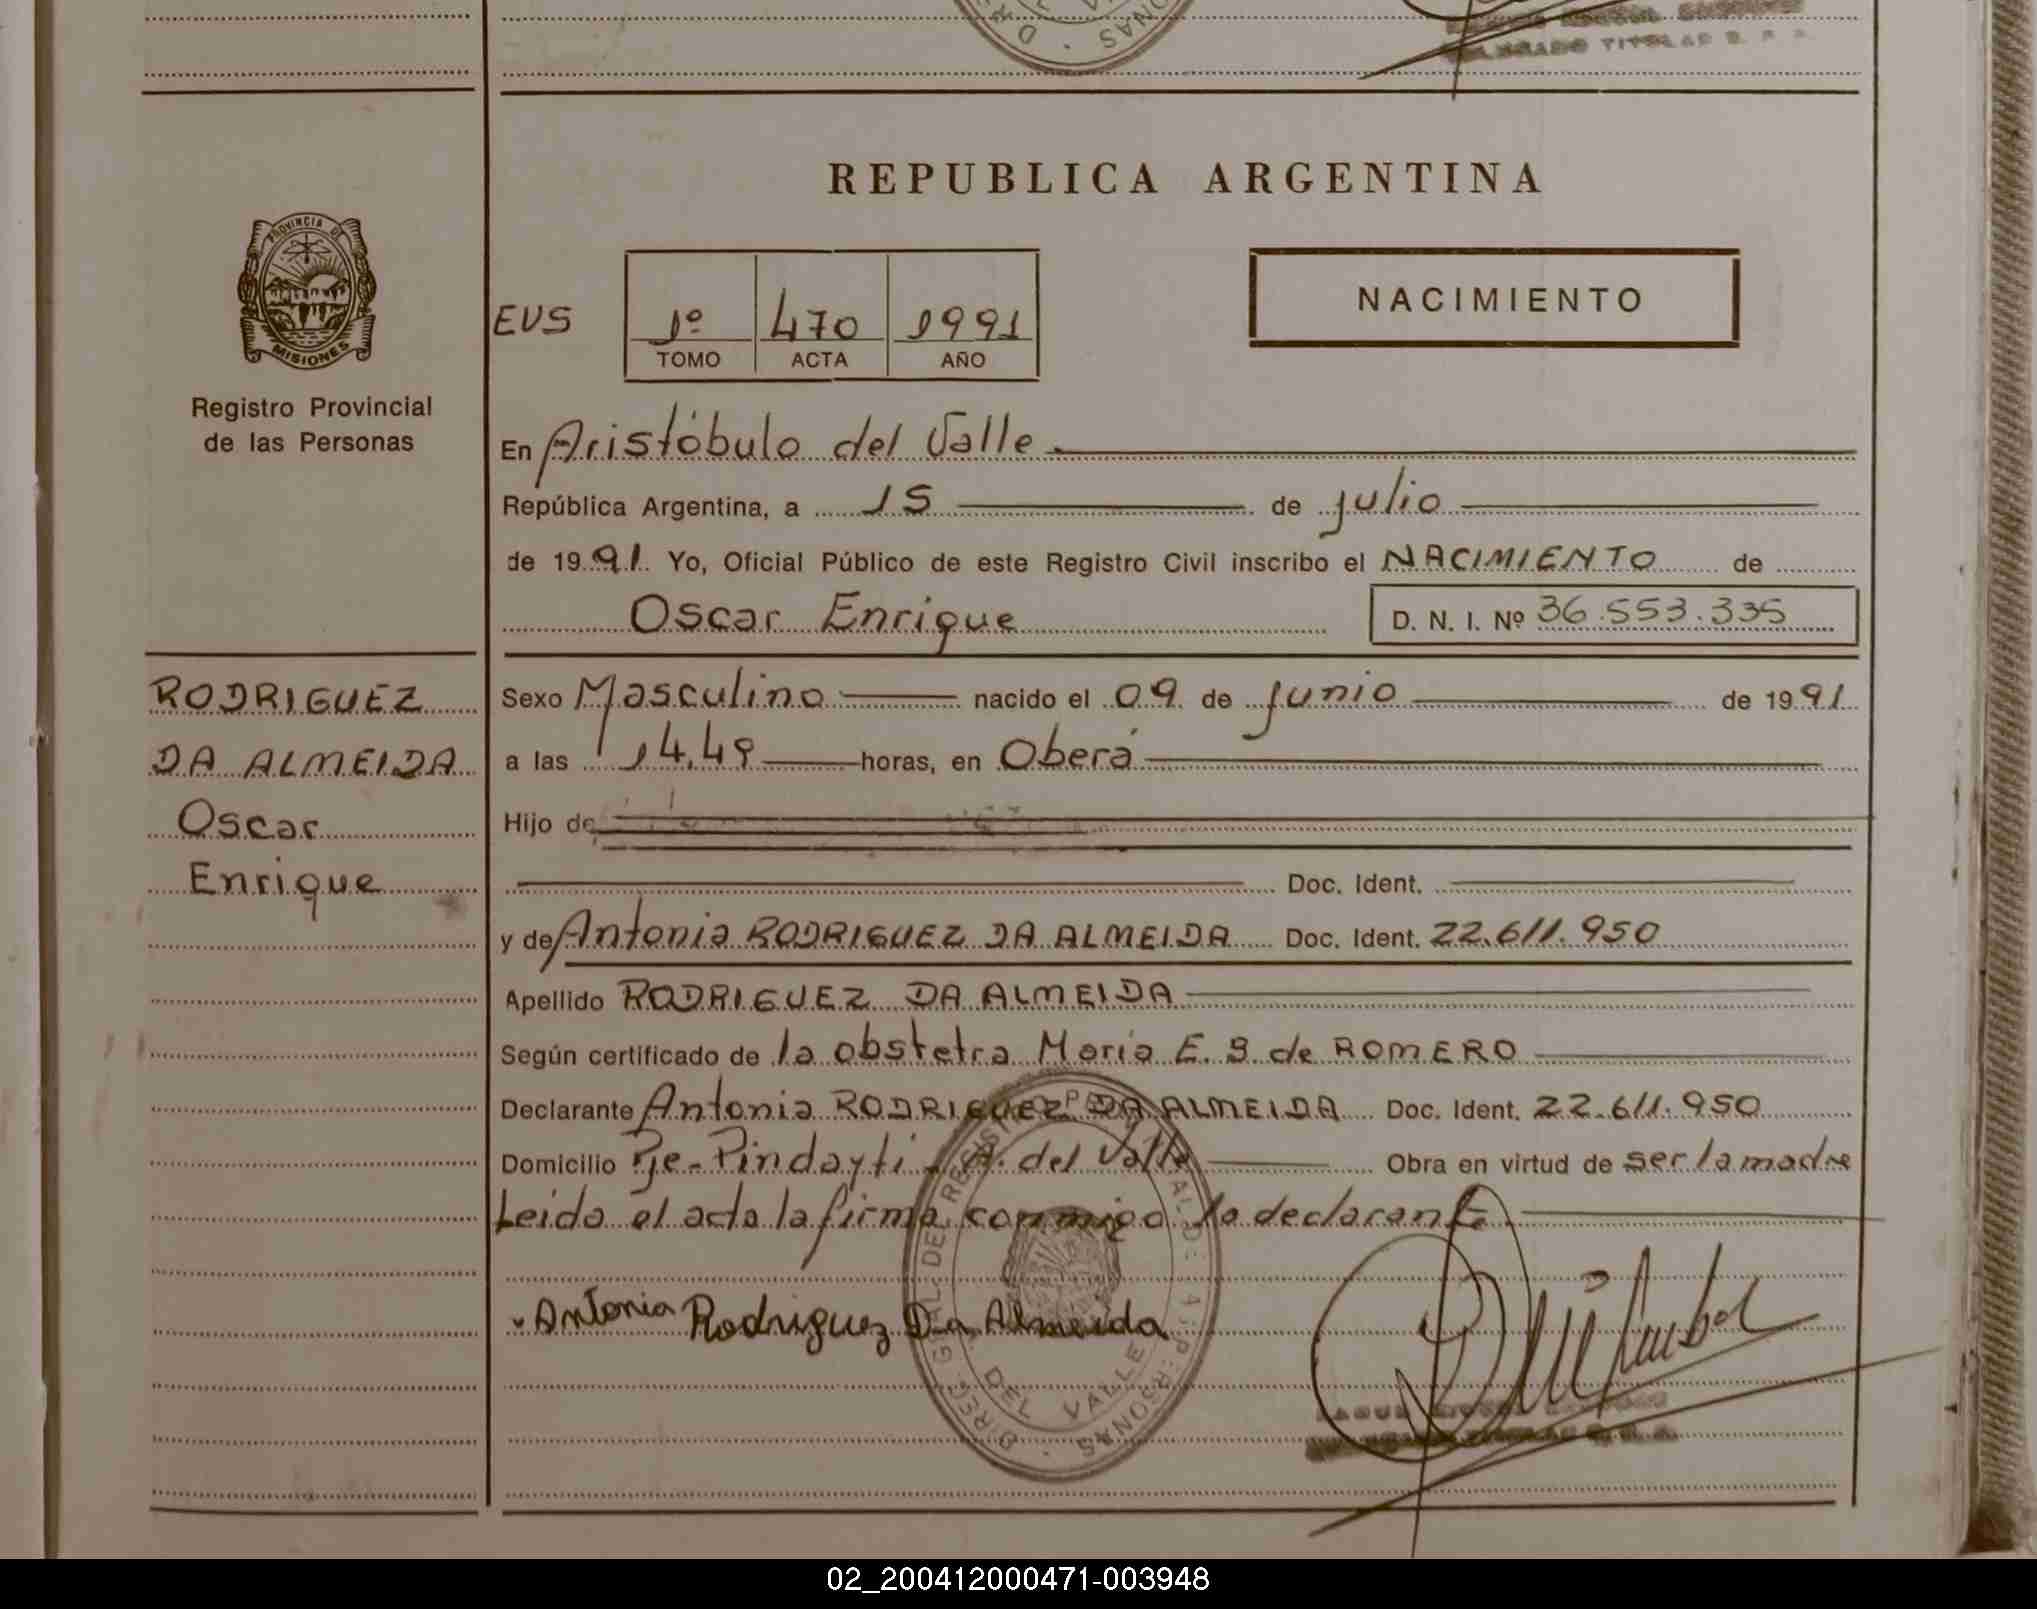 DELEGADO TITULAR R. P. P.
REPUBLICA ARGENTINA
PROVINCIA DE
MISIONES
Registro Provincial
de las Personas
EVS
1º 470 1991
TOMO ACTA AÑO
NACIMIENTO
En Aristóbulo del Valle
República Argentina, a 15 de julio
de 1991. Yo, Oficial Público de este Registro Civil inscribo el NACIMIENTO de
Oscar Enrique D. N. I. Nº 36.553.335
RODRIGUEZ
DA ALMEIDA
Oscar
Enrique
Sexo Masculino nacido el 09 de junio de 1991
a las 14,49 horas, en Oberá
Hijo de
Doc. Ident.
y de Antonia RODRIGUEZ DA ALMEIDA Doc. Ident. 22.611.950
Apellido RODRIGUEZ DA ALMEIDA
Según certificado de la obstetra María E. S. de ROMERO
Declarante Antonia RODRIGUEZ DA ALMEIDA Doc. Ident. 22.611.950
Domicilio Pje. Pindayti - A. del Valle Obra en virtud de ser la madre
Leida el acta la firma conmigo la declarante
Antonia Rodriguez Da Almeida
DEL VALLE
02_200412000471-003948